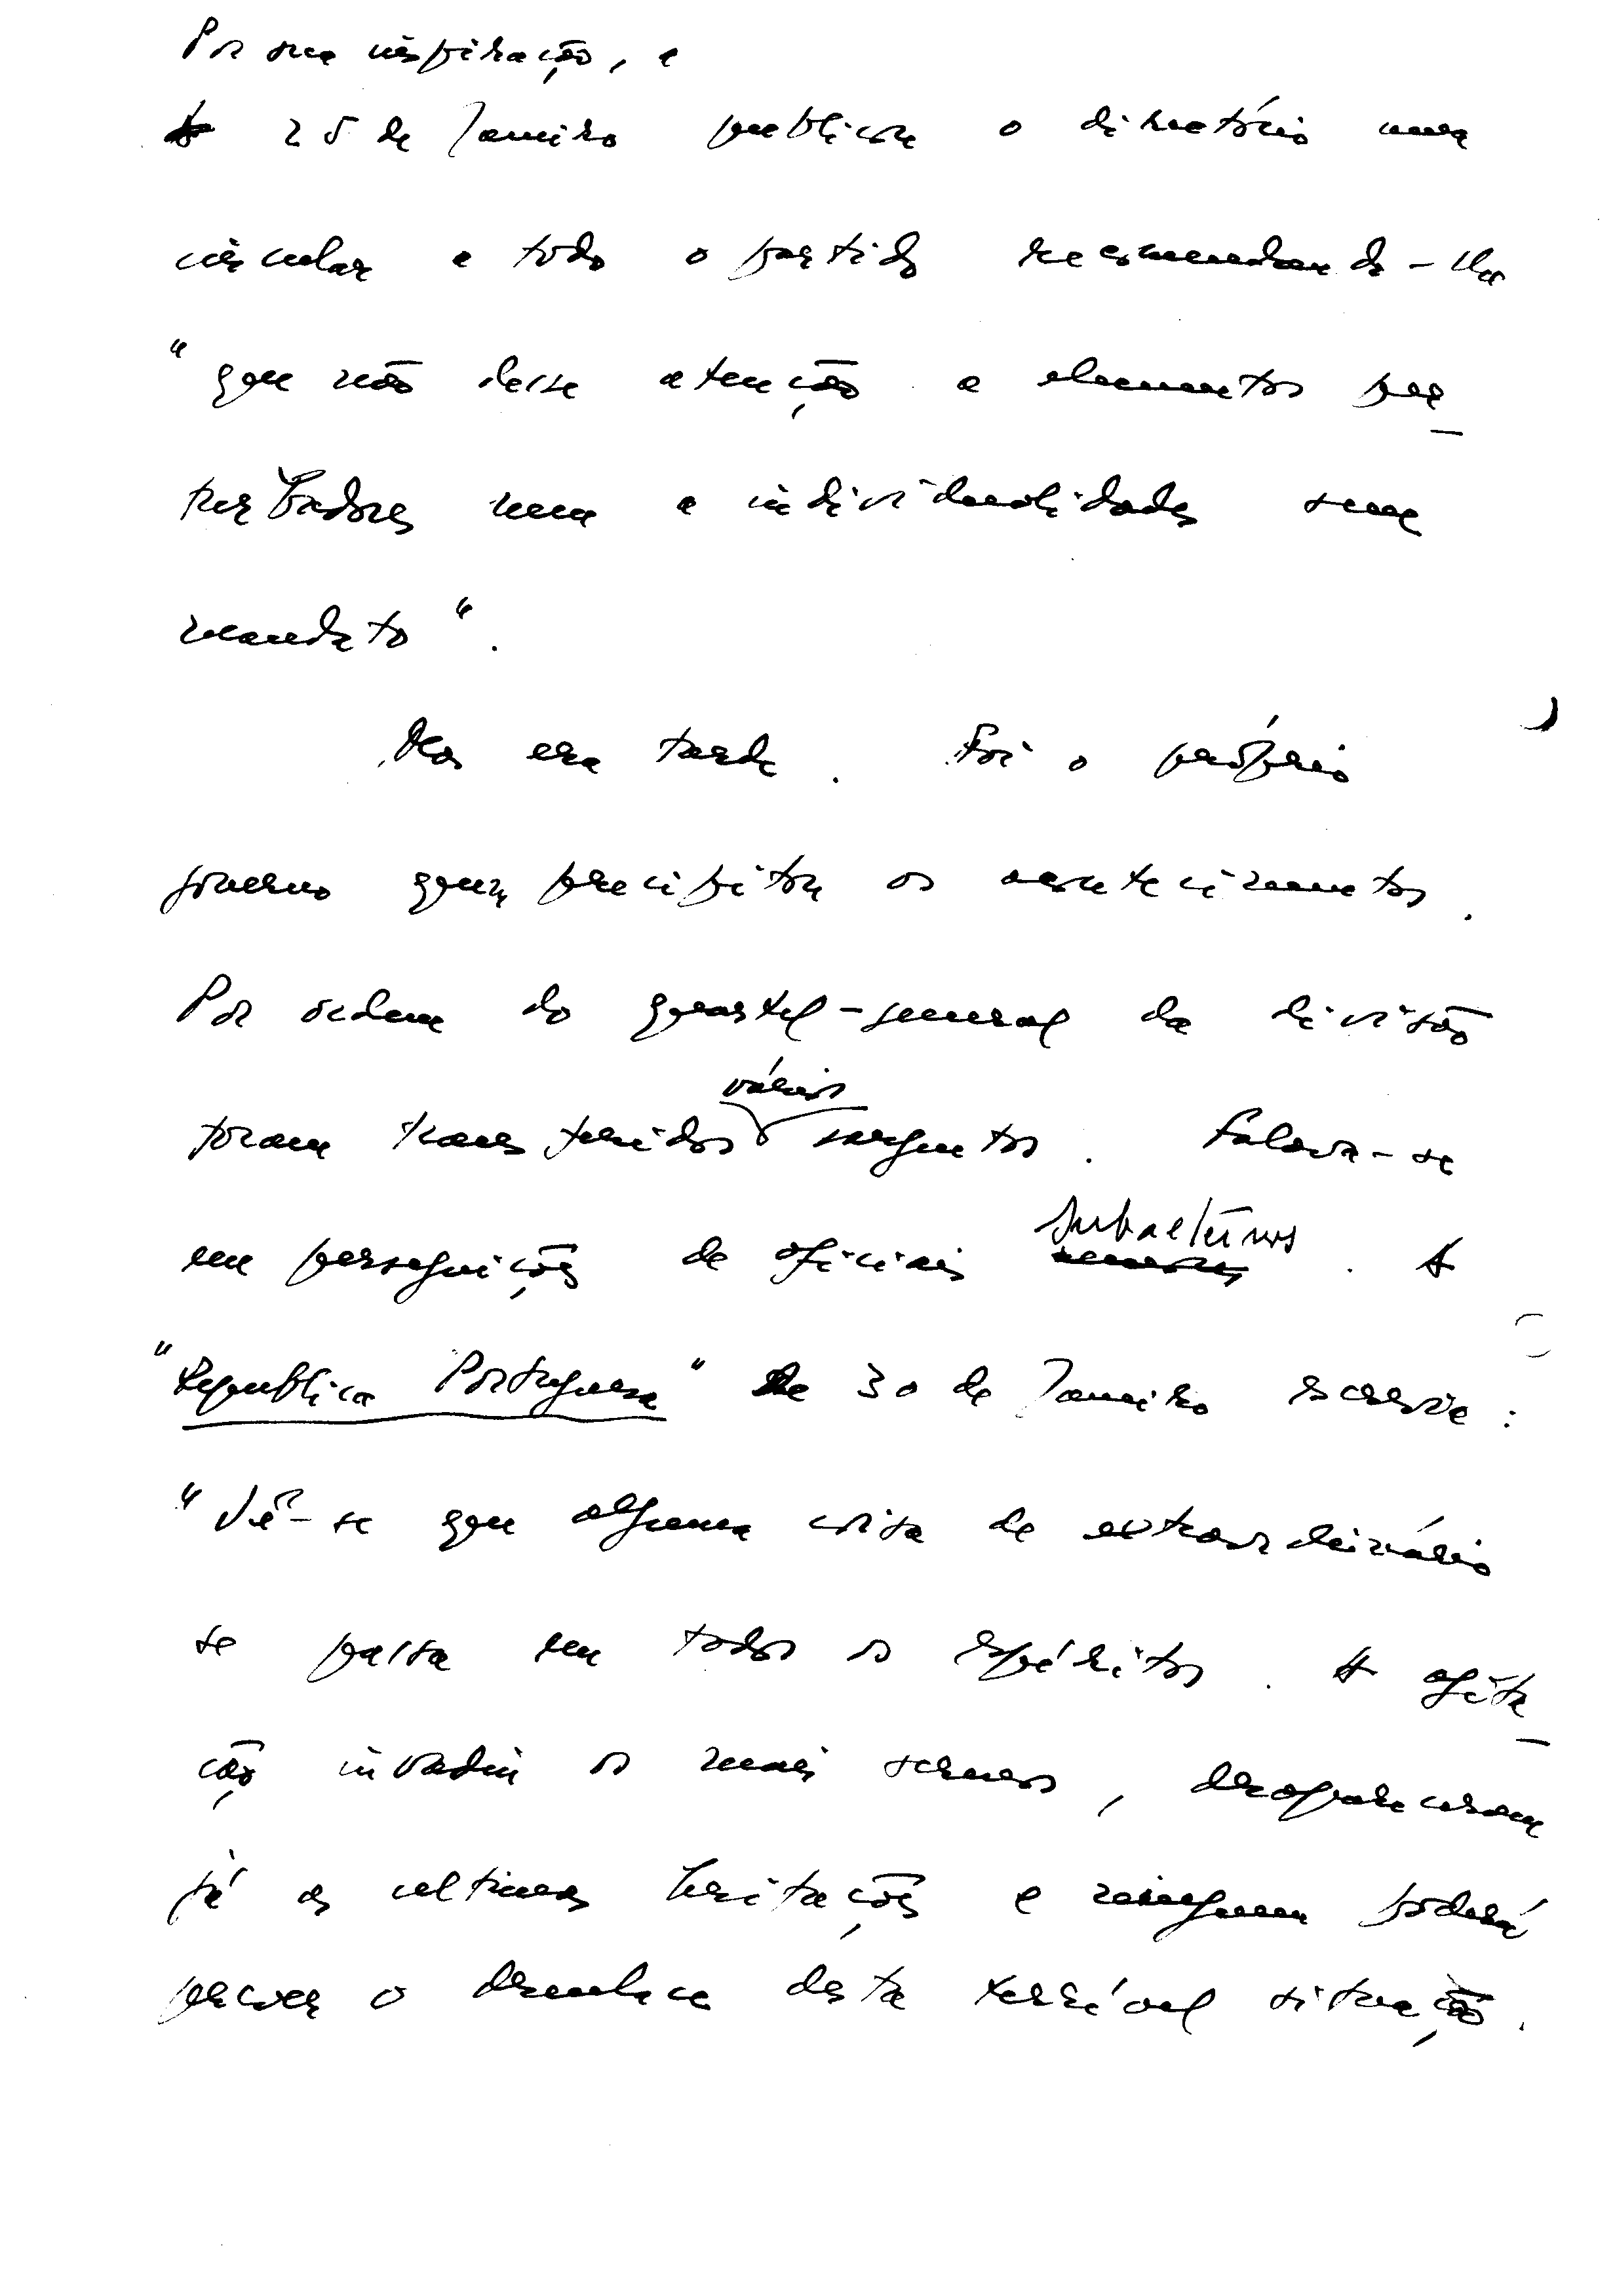 Por sua inspiração, a
25 de Janeiro publica o directório uma
circular a todo o partido recomendando-lhe
"que não desse atenção a elementos per-
turbadores nem a individualidades sem
mandato".
Mas era tarde. Foi o próprio
governo quem precipitou os acontecimentos.
Por ordem do quartel-general da divisão
vários
foram transferidos sargentos. Falava-se
subalternos
em perseguições de oficiais. A
"Republica Portuguesa" de 30 de Janeiro escrevia:
"Vê-se que alguma coisa de extraordinário
se passa em todos os espíritos. A agita-
ção invadiu os mais serenos, desapareceram
já as ultimas hesitações e ninguem poderá
prever o desenlace desta terrível situação.